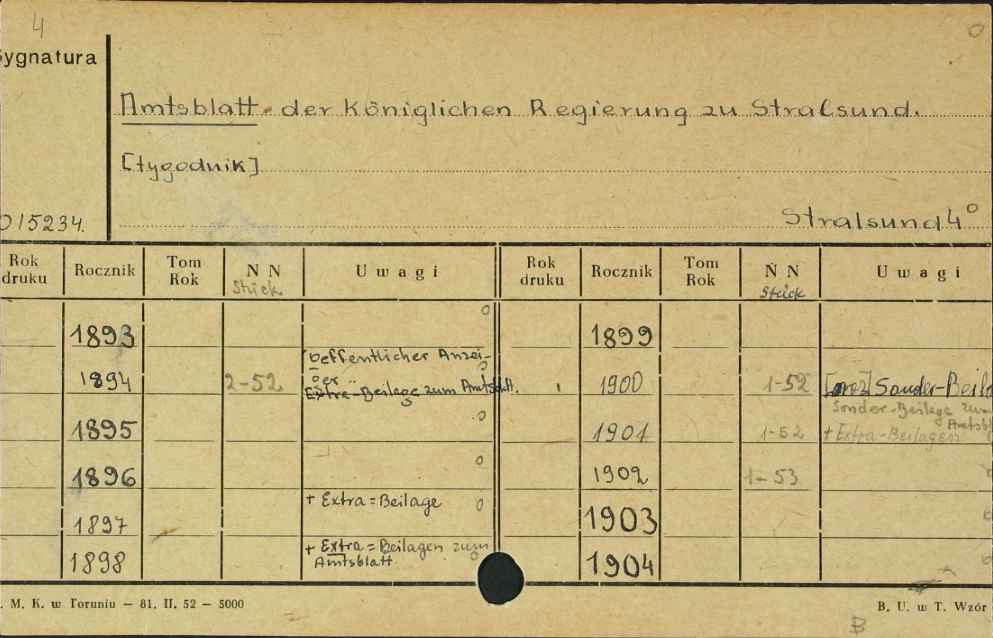 4
Sygnatura
Amtsblatt der Königlichen Regierung zu Stralsund.
[tygodnik]
015234.
Stralsund 4°
Rok druku Rocznik Tom Rok N N Stück Uwagi Rok druku Rocznik Tom Rok N N Stück Uwagi
1893 o 1899
1894 2-52 Oeffentlicher Anzei-
ger o
Extra-Beilage zum Amtsbl. 1900 1-52 Sonder-Beila
1895 o 1901 1-52 Sonder-Beilage zum
Amtsbl
+ Extra-Beilagen
1896 o 1902 1-53
1897 + Extra=Beilage o 1903
1898 + Extra=Beilagen zum
Amtsblatt 1904
. M. K. w Toruniu — 81. II. 52 — 5000
B. U. w T. Wzór
B